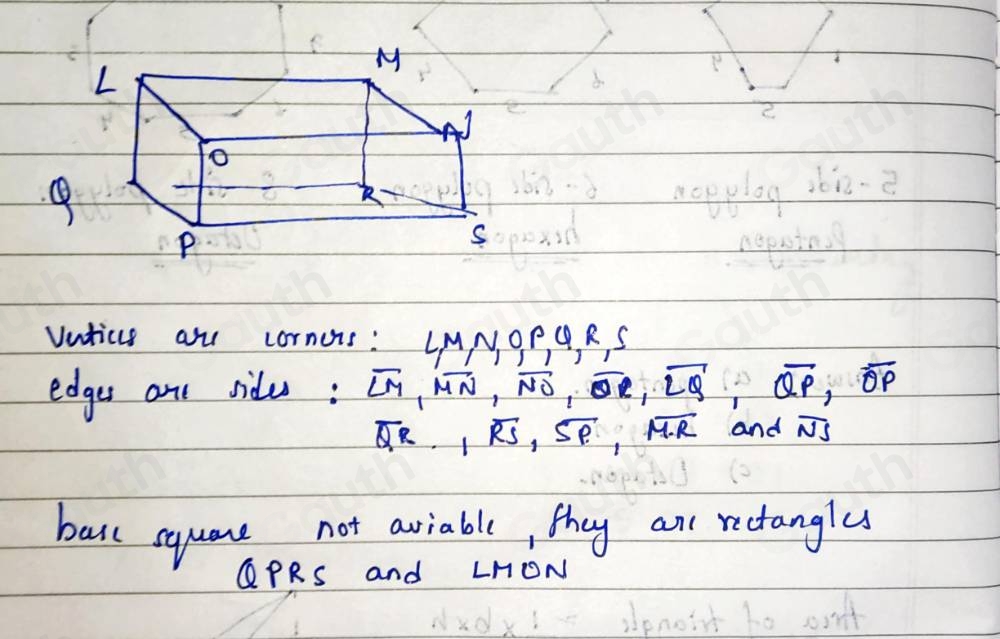 L M
O N
Q R
P S
Vertices are corners: L,M,N,O,P,Q,R,S
edges are sides : LM, MN, NO, LQ, QP, OP
QR, RS, SP, MR and NS
base square not aviable, they are rectangles
QPRS and LMON